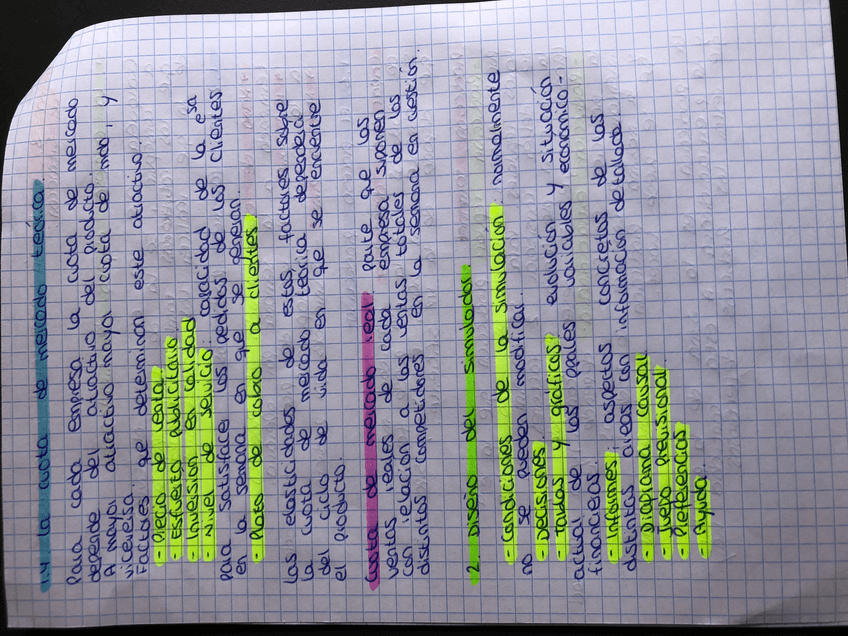 1.4 La cuota de mercado teórica.
Para cada empresa la cuota de mercado
depende del atractivo del producto.
A mayor atractivo mayor cuota de mdo, y
viceversa.
Factores que determinan este atractivo:
- Precio de venta
- Esfuerzo publicitario
- Inversión en calidad
- Nivel de servicio: capacidad de la esa
para satisfacer los pedidos de los clientes
en la semana en que se generan.
- Plazo de cobro a clientes
Las elasticidades de estos factores sobre
la cuota de mercado teórica dependerá
del ciclo de vida en que se encuentre
el producto.
Cuota de mercado real: parte que las
ventas reales de cada empresa suponen
con relación a las ventas totales de los
distintos competidores en la semana en cuestión.
2. Diseño del simulador
- Condiciones de la simulación: normalmente
no se pueden modificar.
- Decisiones
- Tablas y gráficos: evolución y situación
actual de las ppales variables económico-
financieras.
- Informes: aspectos concretos de las
distintas áreas con información detallada.
- Diagrama causal
- Juego previsional
- Preferencias
- Ayuda